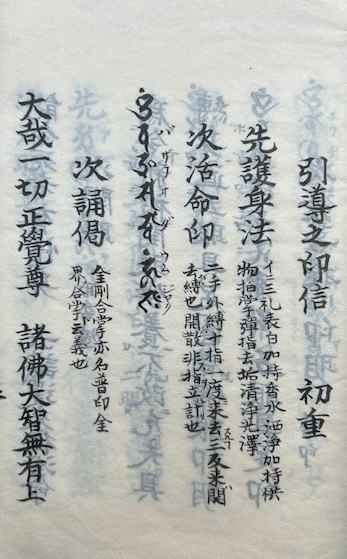 引導之印信　初重
先護身法
三礼表白加持香水洒浄加持供
物拍掌彈指去垢清浄光澤
次活命印
二手外縛十指一度来去三反来開
去縛也開散非指立計也
次誦偈
金剛合掌亦名普印金
界合掌ト云義也
大哉一切正覺尊　諸佛大智無有上